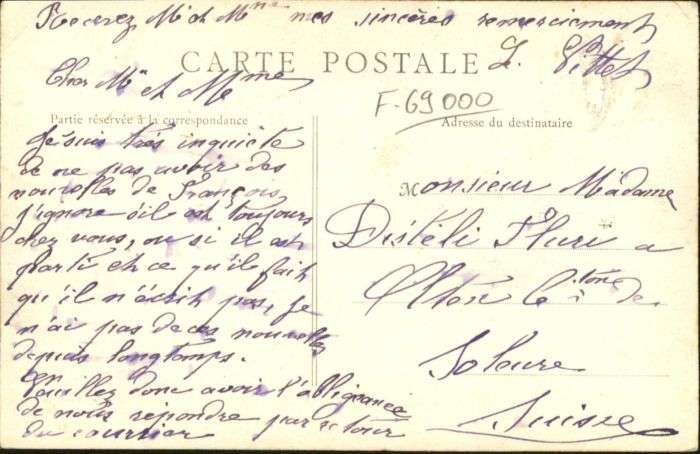 Recevez Mr et Mme mes sincères remerciements
L. Vittet
CARTE POSTALE
Cher Mr et Mme
F-69000
Partie réservée à la correspondance
Adresse du destinataire
Je suis très inquiète
de ne pas avoir des
nouvelles de François,
j'ignore s'il est toujours
chez vous, ou si il est
parti et ce qu'il fait
qu'il n'écrit pas, je
n'ai pas de ces nouvelles
depuis longtemps.
Veuillez donc avoir l'obligeance
de nous répondre par retour
du courrier
Monsieur Madame
Distéli Fluri a
Olten Ctone de
Soleure
Suisse